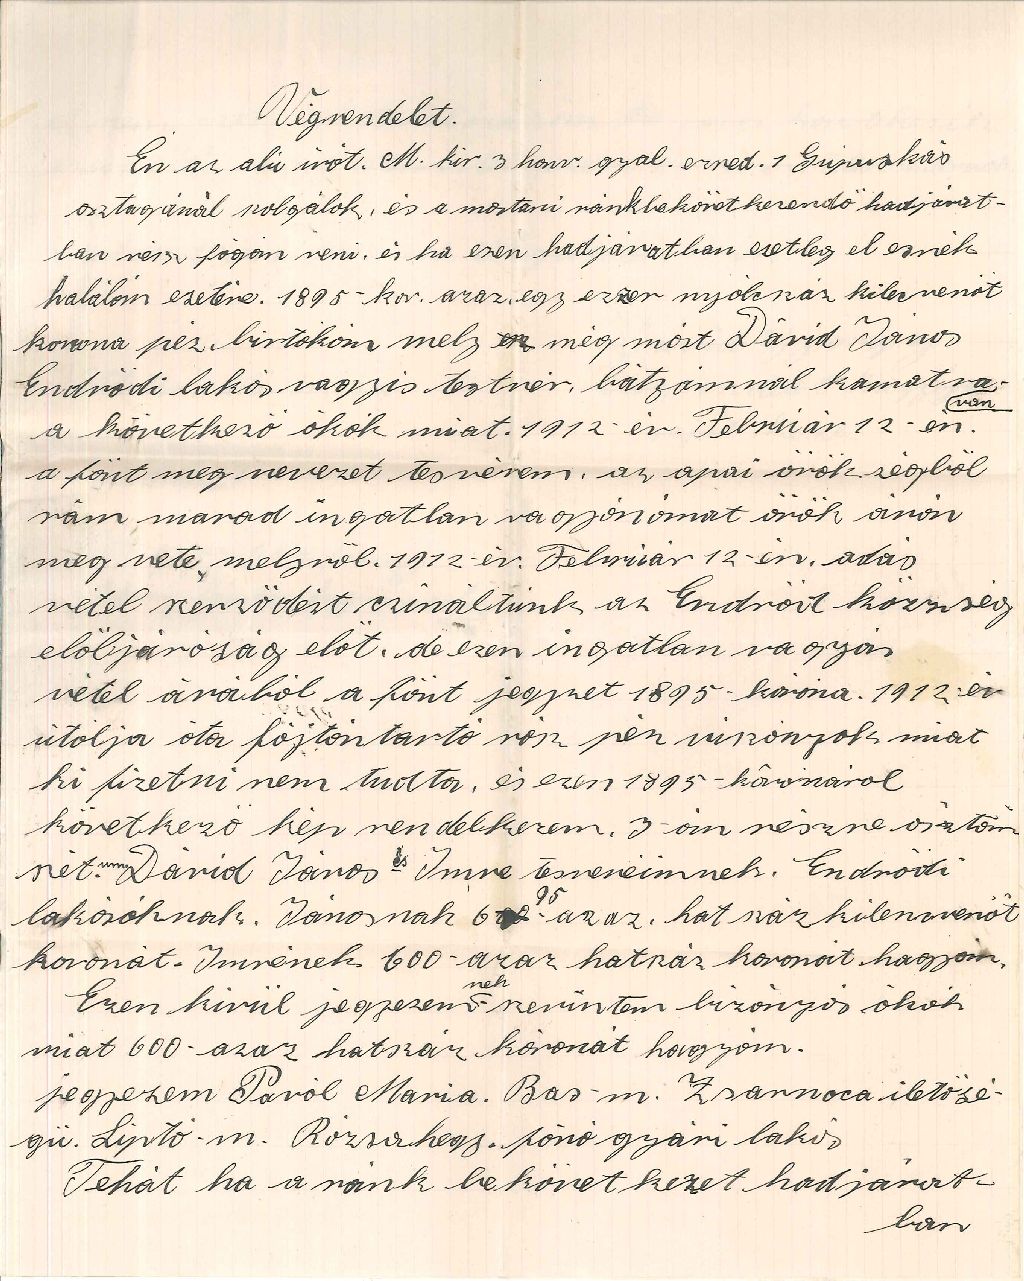 Végrendelet.
Én az alu irót. M. kir. 3 honv. gyal. ezred. 1 Gépuskás
osztagánál szolgálok, és a mostani ránkbekövetkezendő hadjárat-
ban rész fogom veni. és ha ezen hadjáratban esetleg el esnék
halálom esetére. 1895-kor. azaz, egy ezzer nyolcszáz kilencvenöt
korona péz birtokom mely még most Dávid János
Endrődi lakós vagyis testvér, bátyámnál kamatra-
van
a következő ókók miat. 1912-év. Február 12-én.
a fönt meg nevezet tesvérem. az apai örök ségből
rám marad ingatlan vagyonomat örök áron
meg vete, melyről. 1912-év. Február 12-én. adás
vétel szerződést czináltunk az Endrőd község
elöljáróság elöt. de ezen ingatlan vagyon
vétel árából a fönt jegyzet 1895-korona. 1912-év
utolja óta fojton tartó rósz péz viszonyok miat
ki fizetni nem tudta, és ezen 1895-koronárol
következő kép rendelkezem, 3-om részre osztom
szét. Dávid János és Imre tesvéreimnek. Endrődi
lakósóknak. Jánosnak 695-azaz. hat száz kilencvenöt
koronát. Imrének 600-azaz hatszáz koronát hagyom.
Ezen kivül jegyesemnek szerintem bizonyos ókók
miat 600-azaz hatszáz koronát hagyom.
jegyezem Pavól Maria. Bas-m. Zsarnoca iletősé-
gü. Liptó-m. Rózsahegy. fonó gyári lakós
Tehát ha a ránk bekövetkezet hadjárat-
ban